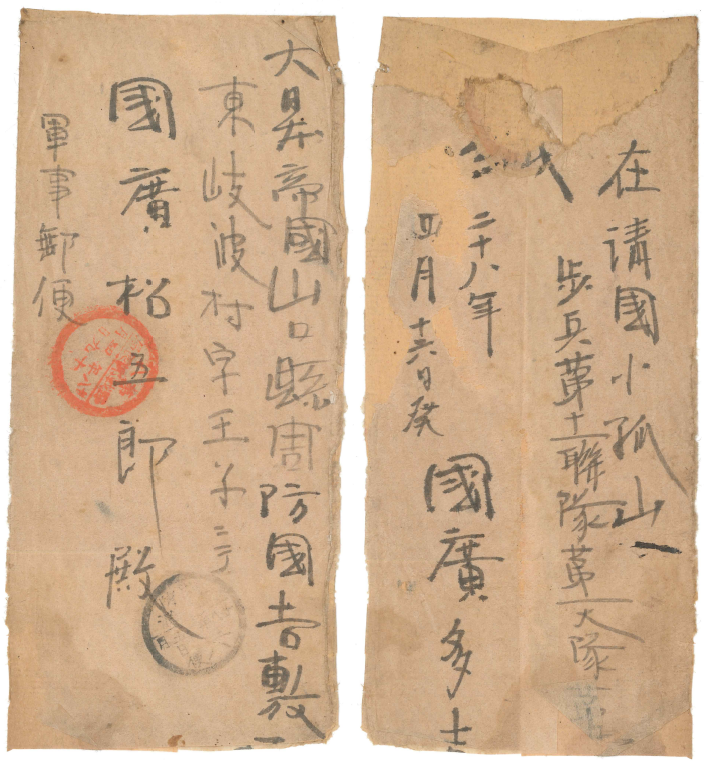 大日本帝國山口縣周防國吉敷
東岐波村字王子
國廣松五郎殿
軍事郵便
在清國小孤山
歩兵第十一聯隊第一大隊第
二十八年
四月十六日発
國廣多吉